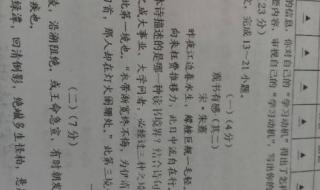 的信息，你对自己的“学习动机”得出了怎样
要内容，审视自己的“学习动机”，写出你的
23分）
文，完成13-21小题。
（一）（4分）
观书有感（其二）
宋·朱熹
昨夜江边春水生，艨艟巨舰一毛轻。
向来枉费推移力，此日中流自在行。
本诗描述的是哪一种读书境界？请结合诗句
之成大事业、大学问者，必经过三种之境
此第一境也。“衣带渐宽终不悔，为伊消
回首，那人却在灯火阑珊处。”此第三境
（二）（7分）
，沿溯阻绝。或王命急宣，有时朝发
疾也。
绿潭，回清倒影，绝巘多生怪柏，悬